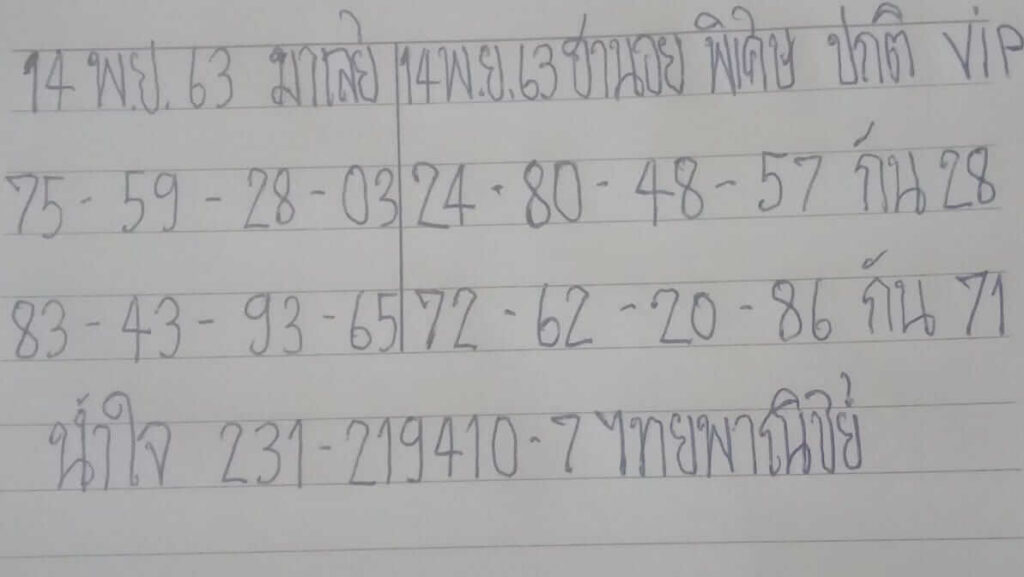 14 พ.ย. 63 มาเลย์ 14 พ.ย. 63 ฮานอย พิเศษ ปกติ VIP
75 - 59 - 28 - 03 24 - 80 - 48 - 57 กัน 28
83 - 43 - 93 - 65 72 - 62 - 20 - 86 กัน 71
น้ำใจ 231-219410-7 ไทยพาณิชย์